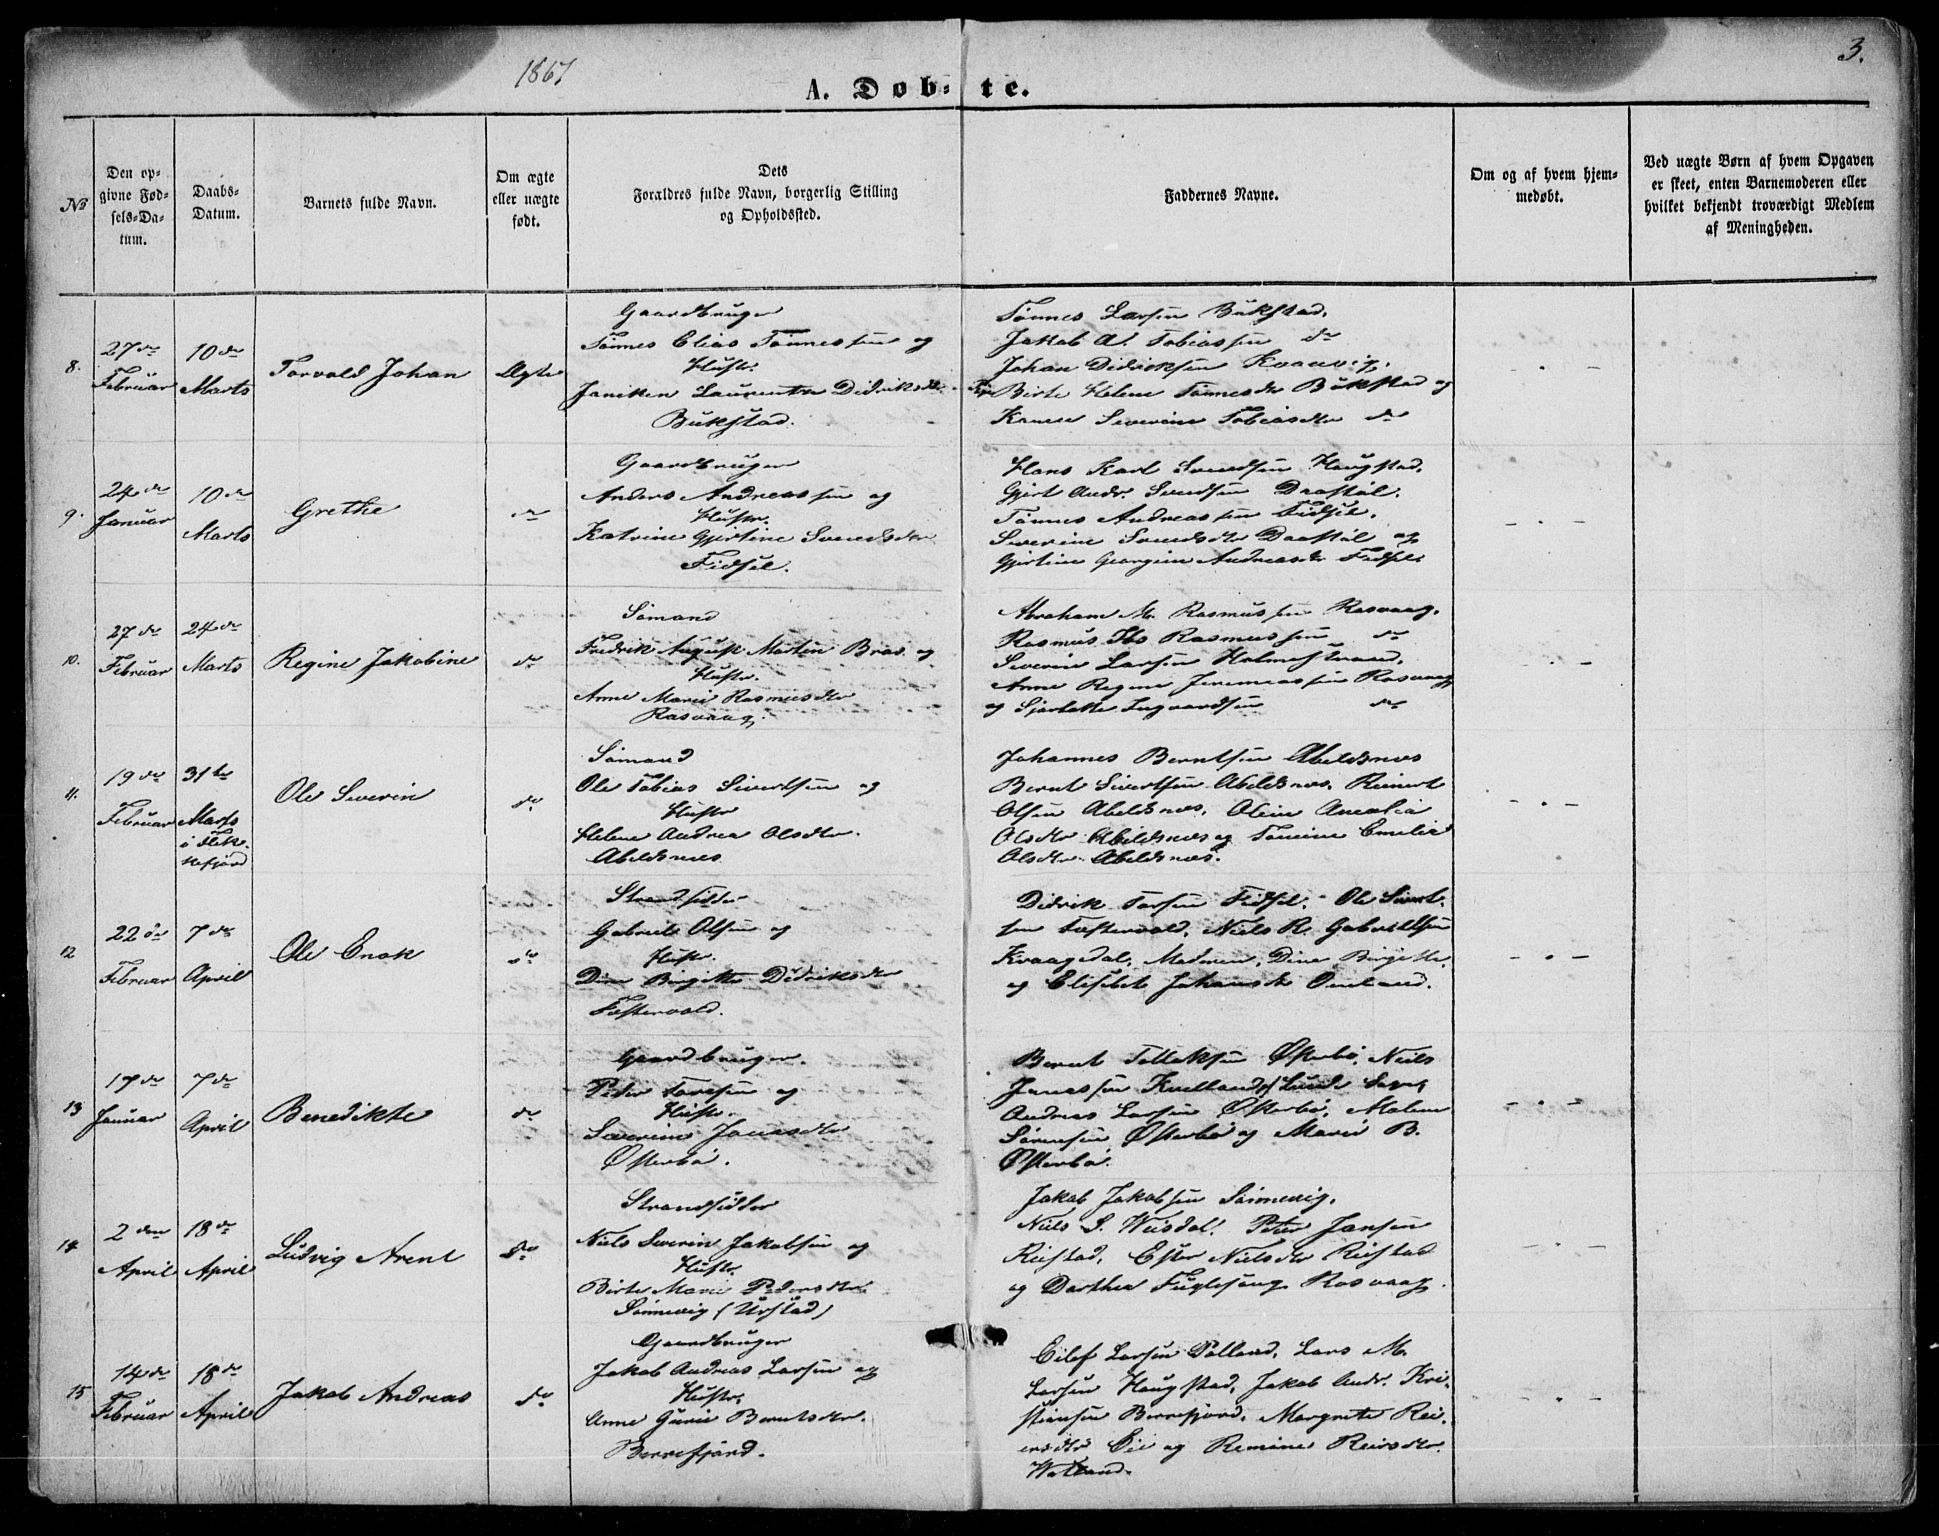 1867
3.
A. Døbte.
No
Den opgivne Fødsels-Datum.
Daabs-Datum.
Barnets fulde Navn.
Om ægte eller uægte født.
Dets Forældres fulde Navn, borgerlig Stilling og Opholdssted.
Faddernes Navne.
Om og af hvem hjemmedøbt.
Ved uægte Børn af hvem Opgaven er skeet, enten Barnemoderen eller hvilket bekjendt troværdigt Medlem af Menigheden.
8.
27de Februar
10de Marts
Torvald Johan
Ægte
Gaardbruger
Tönnes Elias Tönnessen og
Hustr.
Janiken Laurentse Didriksdtr.
Bukstad.
Tönnes Larsen Bukstad,
Jakob A. Tobiassen do
Johan Didriksen
Birte Helene Tönnesdtr Bukstad og
Karen Severine Tobiasdtr do
- . -
9.
24de Januar
10de Marts
Grethe
do
Gaardbruger
Anders Andreassen og
Hustr.
Katrine Gjertine Svendsdtr
Fidsel.
Hans Karl Svendsen Haugstad,
Gjert Andr. Svendsen Drastöl.
Tönnes Andreassen Fidsel.
Severine Svendsdtr Draastöl og
Gjertine Georgine Andreasdtr Fidsel.
- . -
10.
27de Februar
24de Marts
Regine Jakobine
do
Sömand
Fredrik August Martin Bras og
Hustr.
Anne Marie Rasmusdtr
Rasvaag.
Abraham M. Rasmussen Rasvaag.
Rasmus Ibs Rasmussen do
Severin Larsen Holmestrand,
Anne Regine Jeremeassen Rasvaag
og Ingvardsen do
- . -
11.
19de Februar
31te Marts
i Flekkefjord
Ole Severin
do
Sömand
Ole Tobias Sivertsen og
Hustr
Helene Andrea Olsdtr.
Abelsnæs
Johannes Berntsen Abelsnæs
Bernt Sivertsen Abelsnæs, Reinert
Olsen Abelsnæs, Oline Amalia
Olsdtr Abelsnæs og Tomine Emilie
Olsdtr Abelsnæs.
- . -
12
22de Februar
7de April
Ole Enok
do
Strandsidder
Gabriel Olsen og
Hustr.
Dine Birgitte Didriksdtr
Fæstervold.
Didrik Torsen Fidsel, Ole Sivert-
sen Fæstervold, Niels R. Gabrielsen
Kraagedal, Madmen, Dina Birgitte,
og Elisabet Johansdtr Omland.
- . -
13
17de Januar
7de April
Benedikte
do
Gaardbruger.
Peder Toresen og
Hustr.
Severine Jonasdtr
Østerbö.
Bernt Tollaksen Østerbö, Niels
Jonassen Kvelland i Lunde Sogn,
Andreas Larsen Østerbö, Malene
Sörensen Østerbö og Marie B.
Østerbö.
- . -
14
2den April
18de April
Ludvig Arent
do
Strandsidder
Niels Severin Jakobsen og
Hustr.
Birte Marie Pedersdtr
Sönnevig (Urstad)
Jakob Jakobsen Sönnevig,
Niels S. Veisdal. Peder Jansen
Reistad, Ester Nielsdtr Reistad
og Dorthea Fuglesang Rasvaag.
- . -
15
14de Februar
18de April
Jakob Andreas
do
Gaardbruger
Jakob Andreas Larsen og
Hustr.
Anne Gurie Berntsdtr.
Berrefjord.
Eilef Larsen Rolland, Lars M.
Larsen Haugstad, Jakob Andr. Kri-
stiansen Berrefjord, Margrete Rei-
ersdtr Eie og Remine Reiersdtr
Watland.
- . -